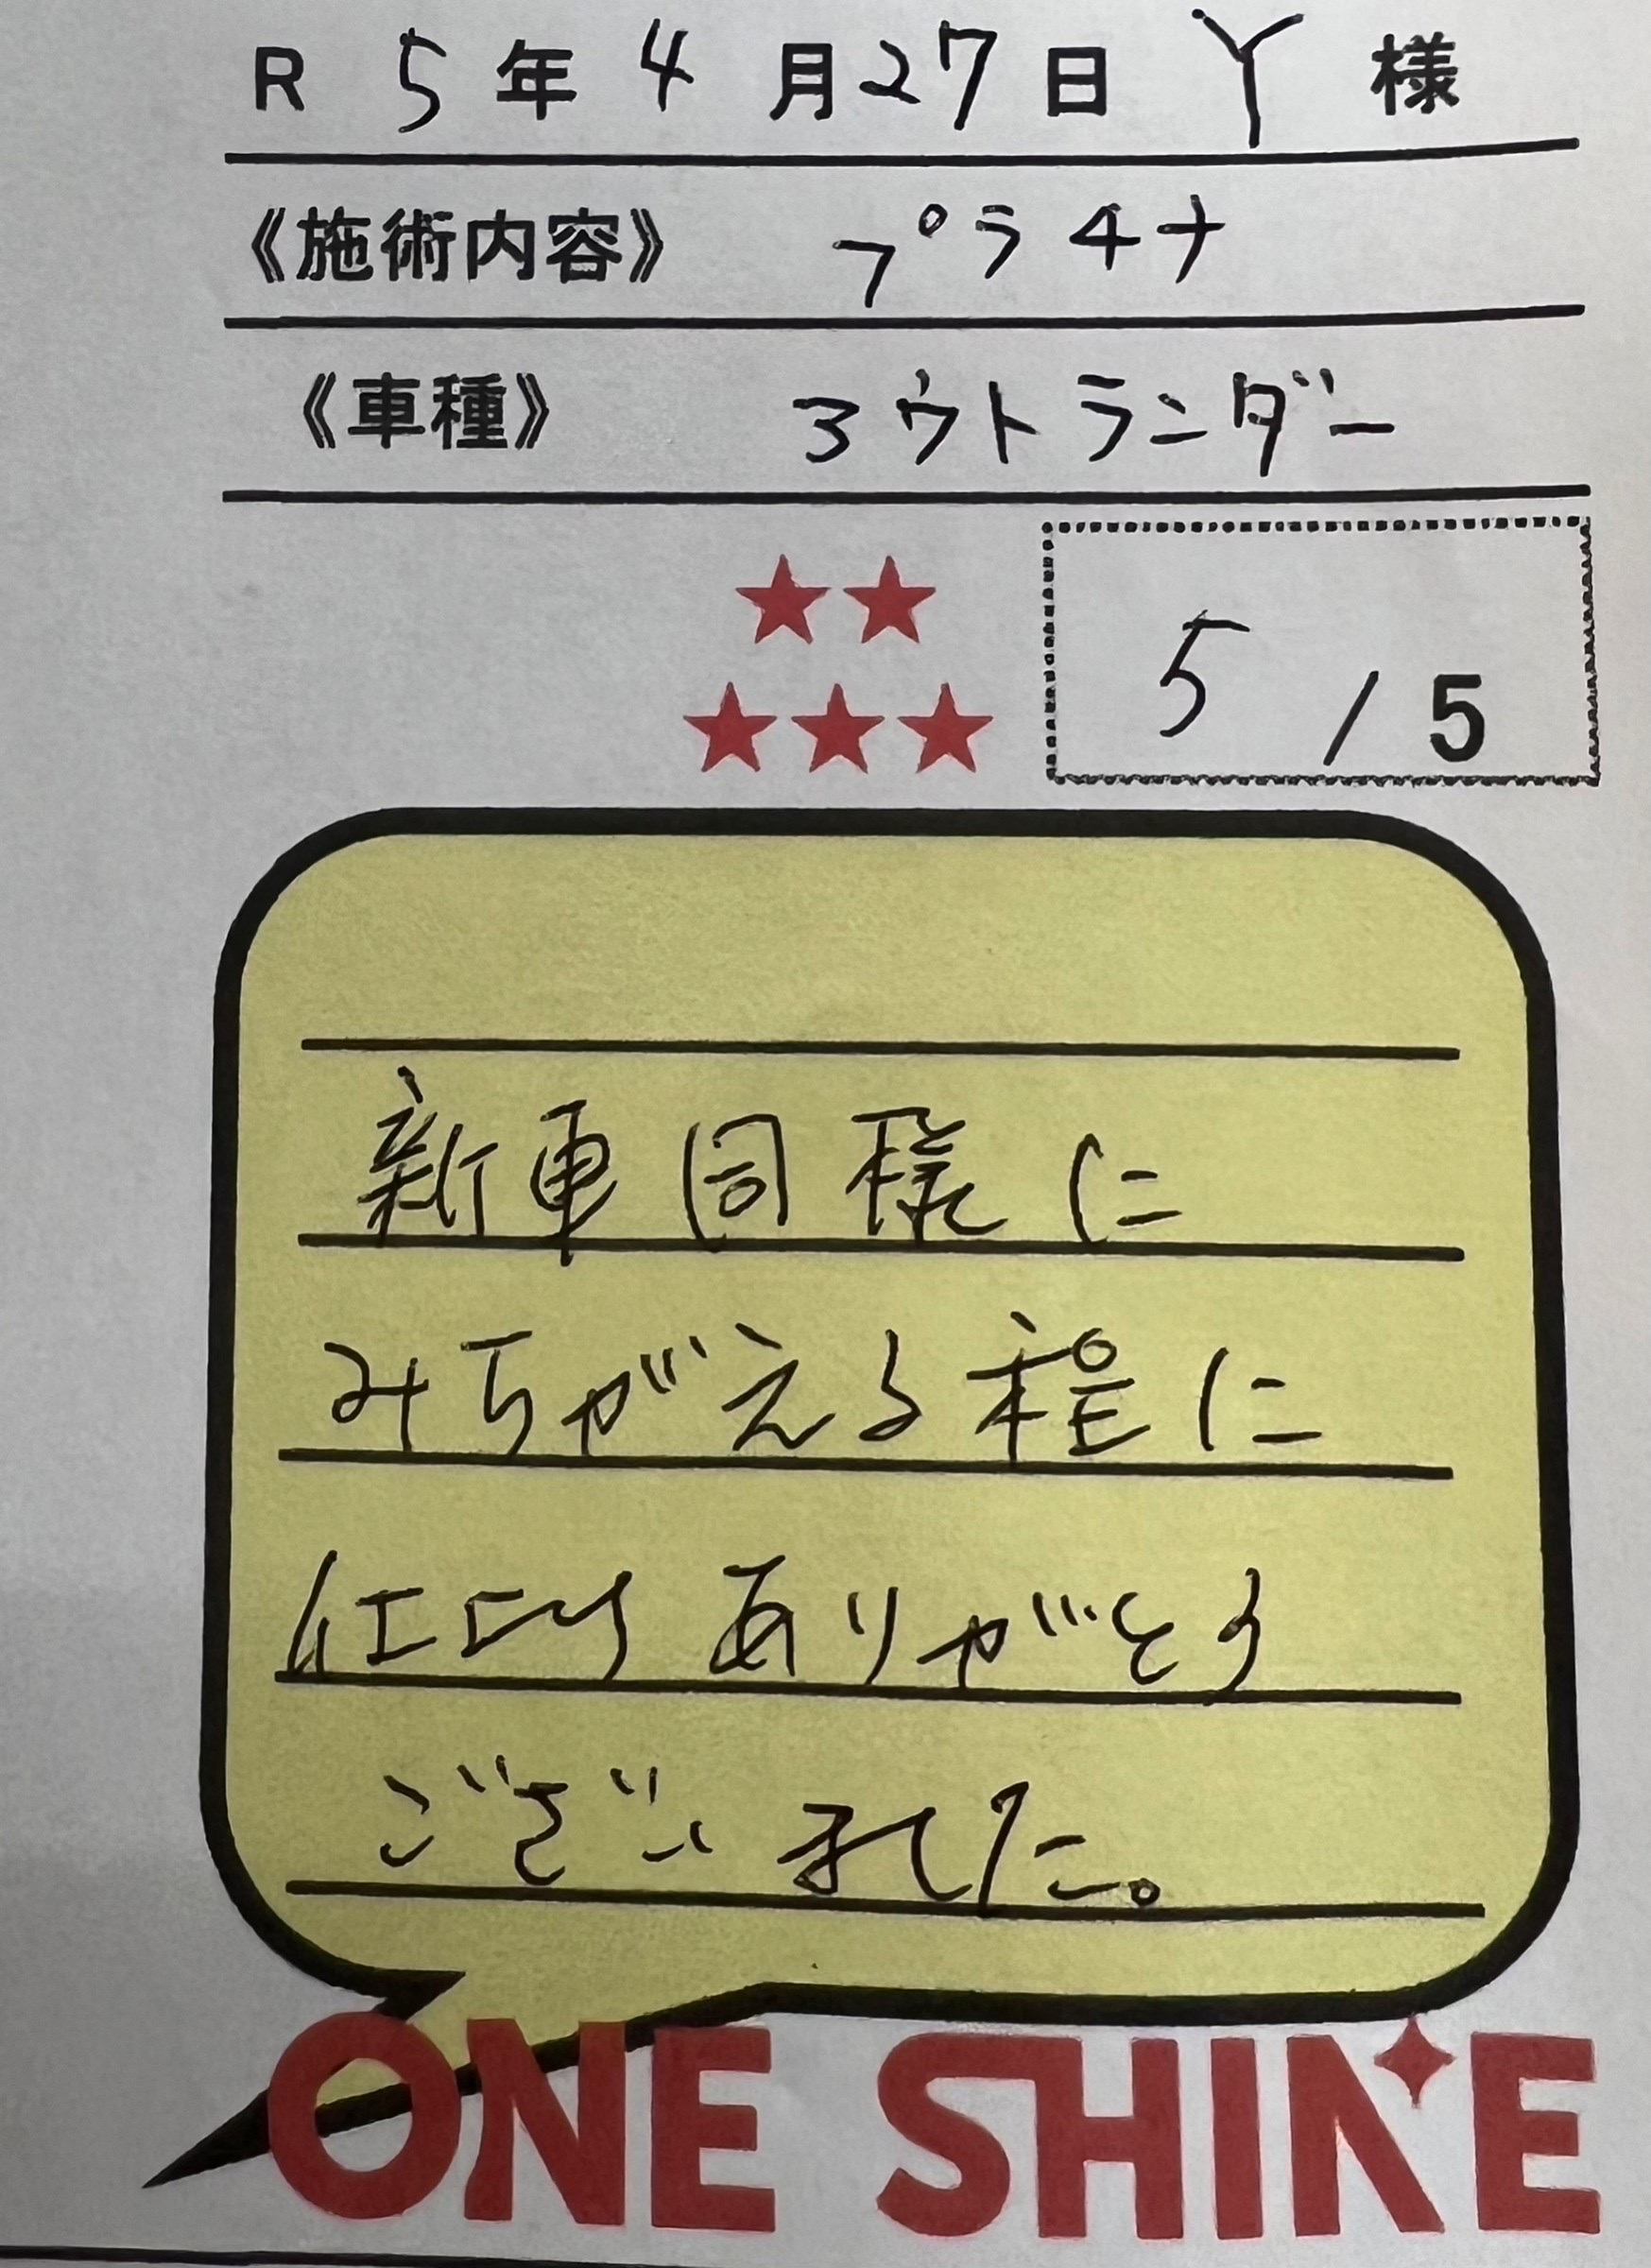 R 5年 4月27日 Y 様
《施術内容》 プラチナ
《車種》 アウトランダー
5 / 5
新車同様に
みちがえる程に
仕上り ありがとう
ございました。
ONE SHINE